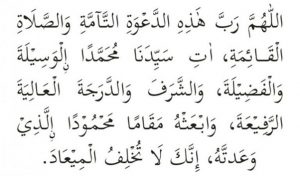 اَللّٰهُمَّ رَبَّ هٰذِهِ الدَّعْوَةِ التَّآمَّةِ وَالصَّلَاةِ
الْقَائِمَةِ، اٰتِ سَيِّدَنَا مُحَمَّدًا ࣙالْوَسِيْلَةَ
وَالْفَضِيْلَةَ، وَالشَّرَفَ وَالدَّرَجَةَ الْعَالِيَةَ
الرَّفِيْعَةَ، وَابْعَثْهُ مَقَامًا مَحْمُوْدًا ࣙالَّذِيْ
وَعَدْتَهُ، إِنَّكَ لَا تُخْلِفُ الْمِيْعَادَ.